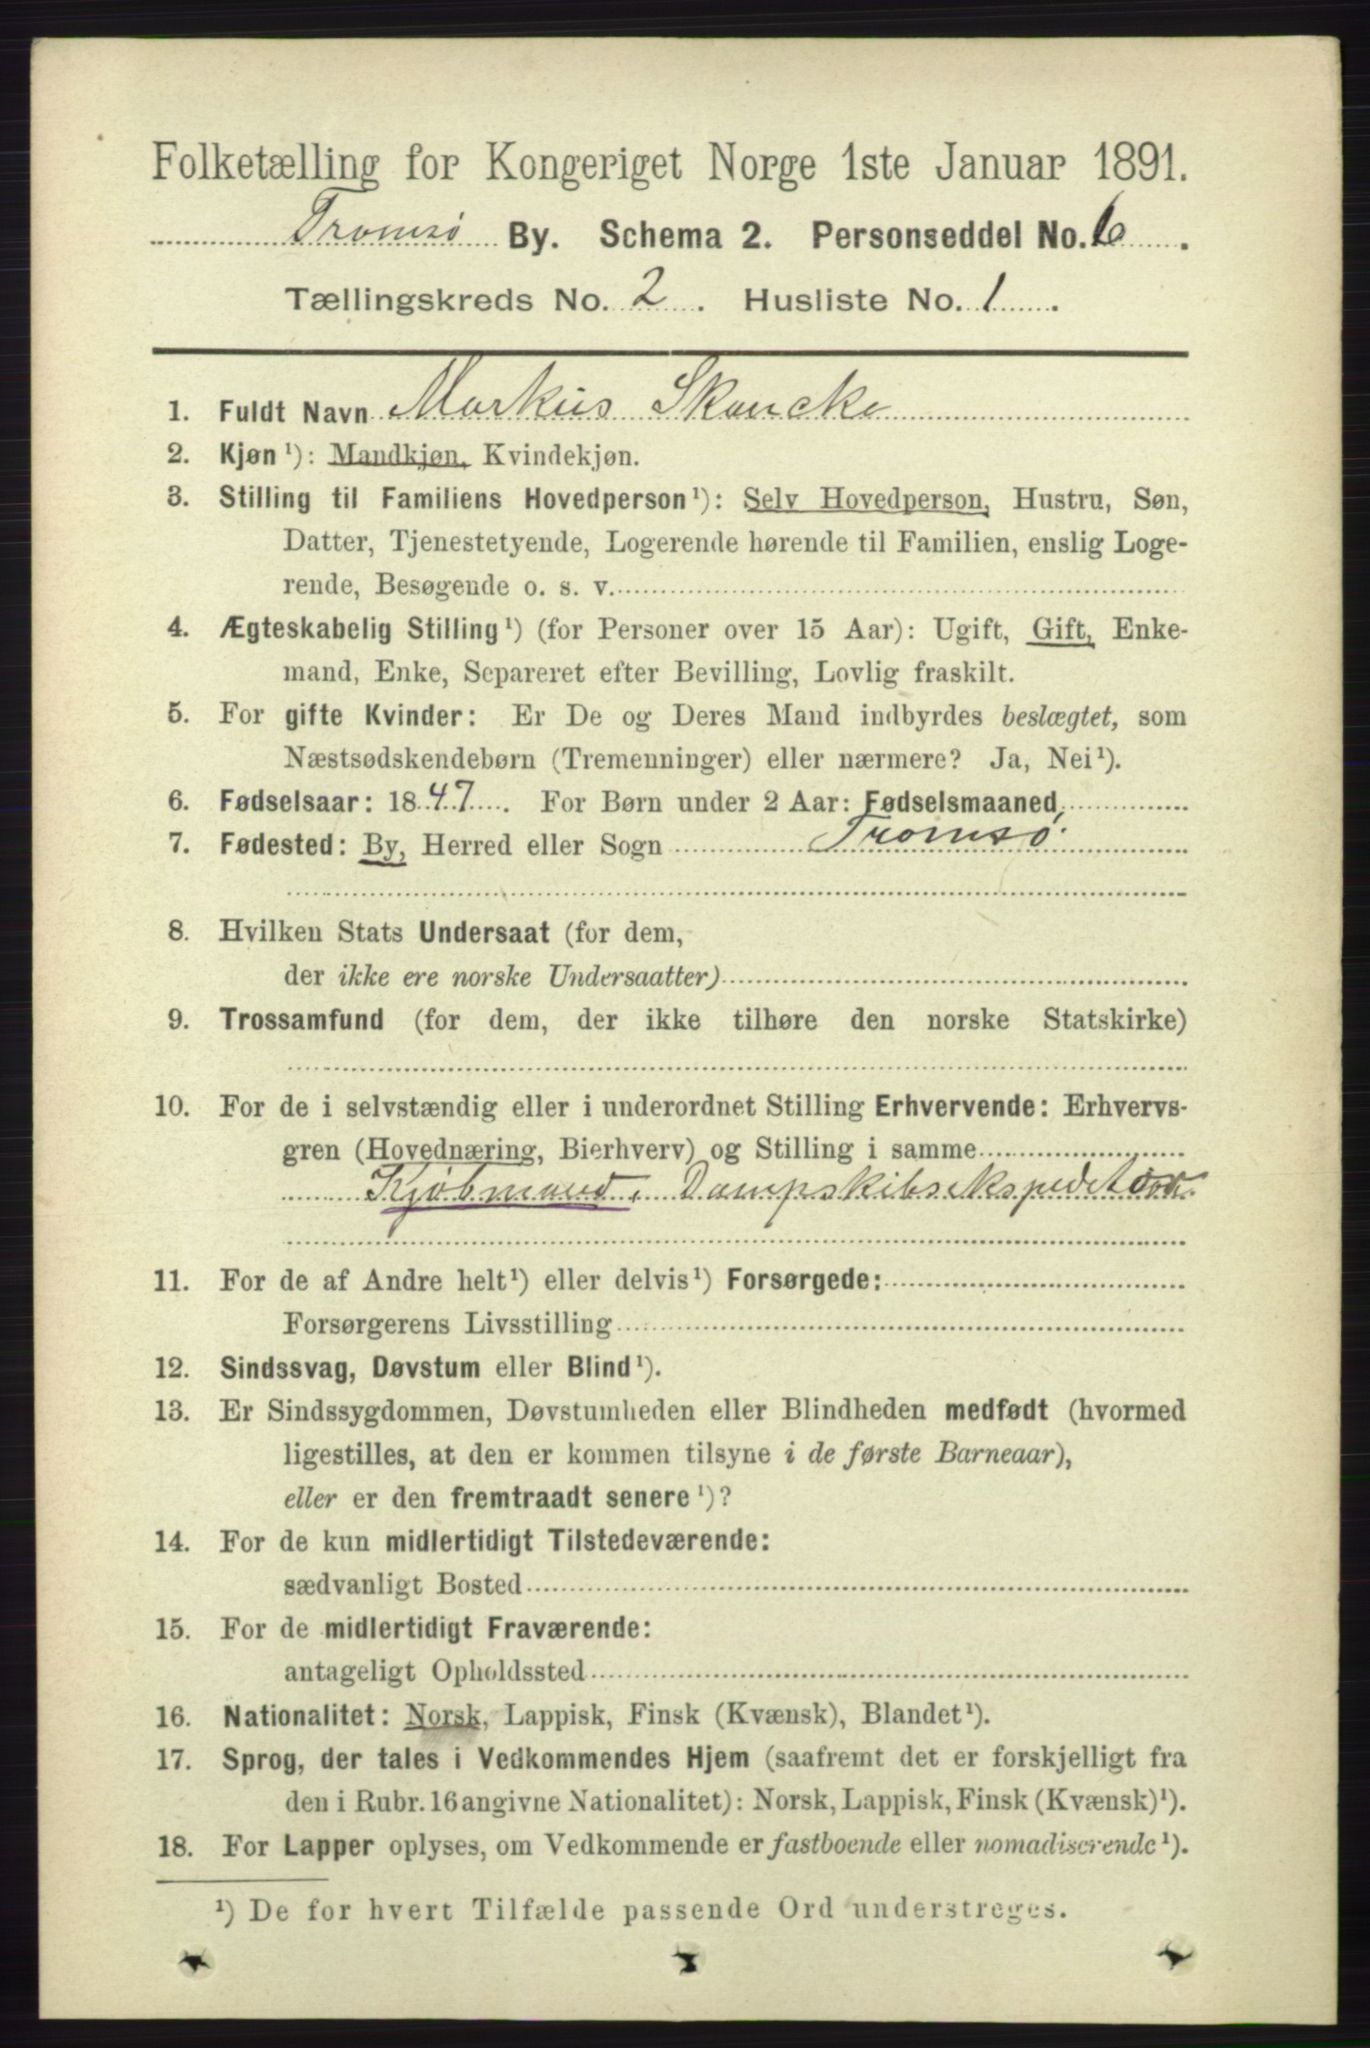 Folketælling for Kongeriget Norge 1ste Januar 1891.
Tromsø By. Schema 2. Personseddel No. 6.
Tællingskreds No. 2. Husliste No. 1.
1. Fuldt Navn Markus Skancke
2. Kjøn¹): Mandkjøn, Kvindekjøn.
3. Stilling til Familiens Hovedperson¹): Selv Hovedperson, Hustru, Søn,
Datter, Tjenestetyende, Logerende hørende til Familien, enslig Loge-
rende, Besøgende o. s. v.
4. Ægteskabelig Stilling¹) (for Personer over 15 Aar): Ugift, Gift, Enke-
mand, Enke, Separeret efter Bevilling, Lovlig fraskilt.
5. For gifte Kvinder: Er De og Deres Mand indbyrdes beslægtet, som
Næstsødskendebørn (Tremenninger) eller nærmere? Ja, Nei¹).
6. Fødselsaar: 1847. For Børn under 2 Aar: Fødselsmaaned
7. Fødested: By, Herred eller Sogn Tromsø.
8. Hvilken Stats Undersaat (for dem,
der ikke ere norske Undersaatter)
9. Trossamfund (for dem, der ikke tilhøre den norske Statskirke)
10. For de i selvstændig eller i underordnet Stilling Erhvervende: Erhvervs-
gren (Hovednæring, Bierhverv) og Stilling i samme
Kjøbmand, Dampskibsekspeditør.
11. For de af Andre helt¹) eller delvis¹) Forsørgede:
Forsørgerens Livsstilling
12. Sindssvag, Døvstum eller Blind¹).
13. Er Sindssygdommen, Døvstumheden eller Blindheden medfødt (hvormed
ligestilles, at den er kommen tilsyne i de første Barneaar),
eller er den fremtraadt senere¹)?
14. For de kun midlertidigt Tilstedeværende:
sædvanligt Bosted
15. For de midlertidigt Fraværende:
antageligt Opholdssted
16. Nationalitet: Norsk, Lappisk, Finsk (Kvænsk), Blandet¹).
17. Sprog, der tales i Vedkommendes Hjem (saafremt det er forskjelligt fra
den i Rubr. 16 angivne Nationalitet): Norsk, Lappisk, Finsk (Kvænsk)¹).
18. For Lapper oplyses, om Vedkommende er fastboende eller nomadiserende¹).
¹) De for hvert Tilfælde passende Ord understreges.